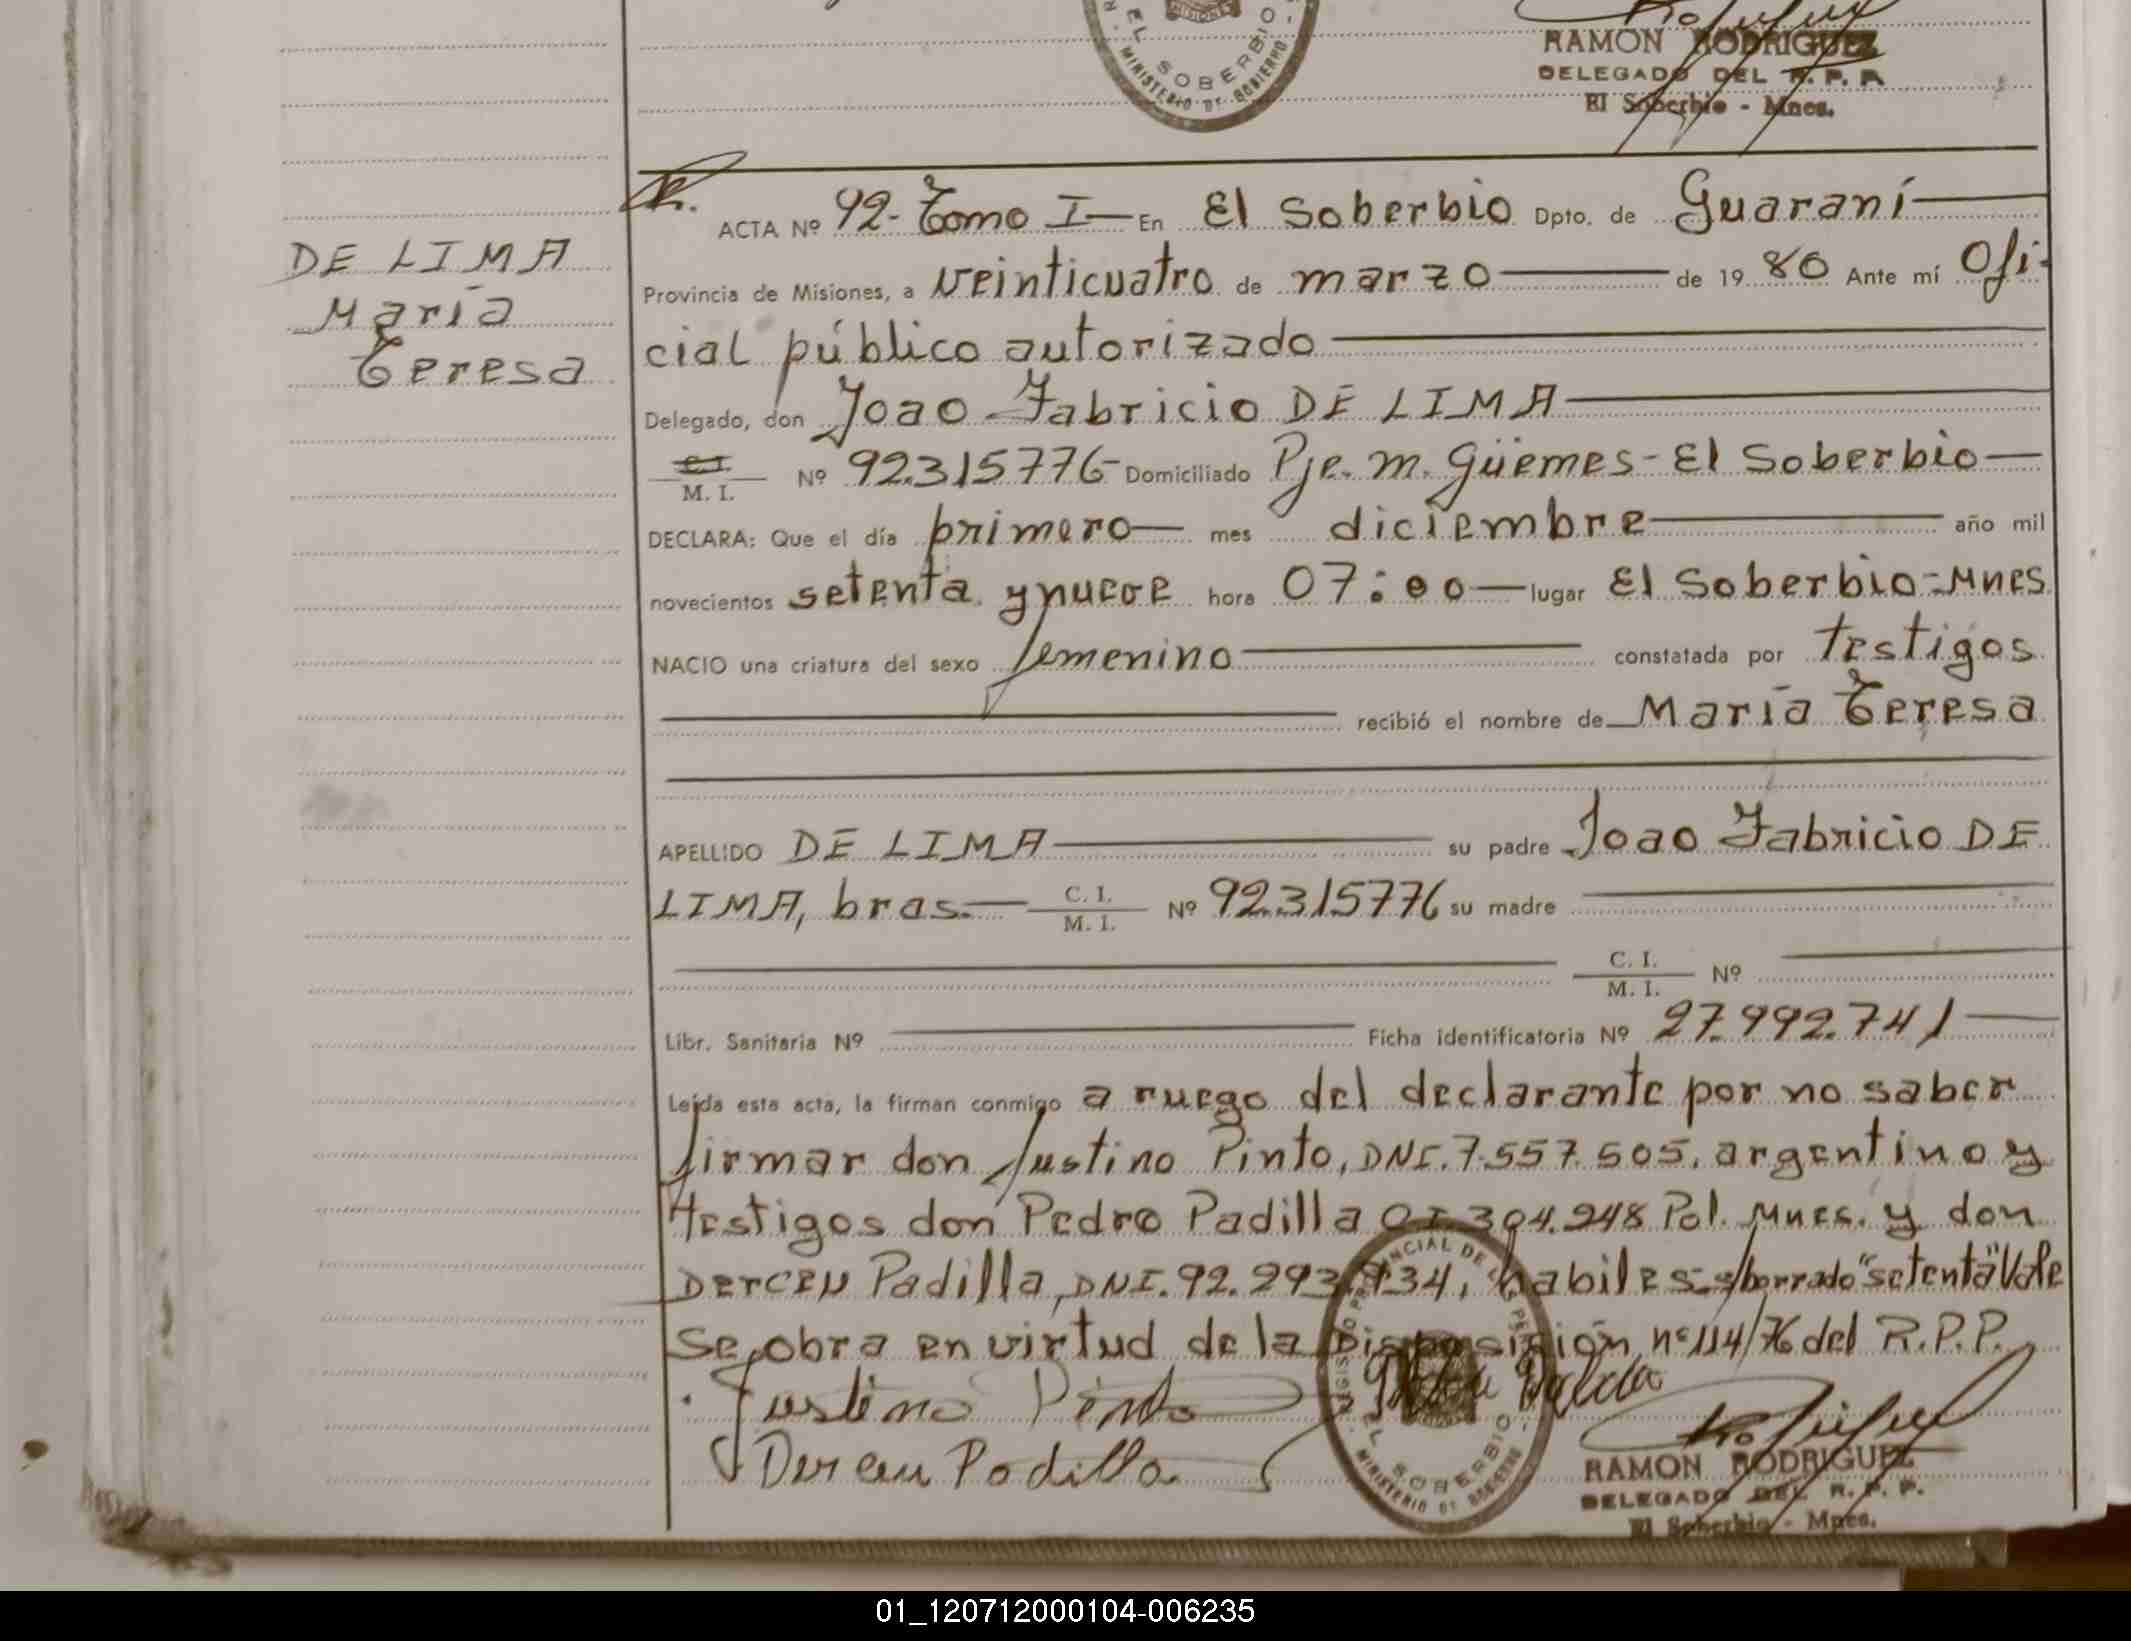 EL SOBERBIO
MINISTERIO DE GOBIERNO
MISIONES
RAMON RODRIGUEZ
DELEGADO DEL R. P. P.
El Soberbio - Mnes.
DE LIMA
María
Teresa
ACTA Nº 92- Tomo I — En El Soberbio Dpto. de Guaraní
Provincia de Misiones, a veinticuatro de marzo de 19 80 Ante mí Ofi-
cial público autorizado
Delegado, don Joao Fabricio DE LIMA
C.I. / M. I. Nº 92.315776- Domiciliado Pje. M. Güemes - El Soberbio
DECLARA: Que el día primero mes diciembre año mil
novecientos setenta y nueve hora 07:00 lugar El Soberbio-Mnes
NACIO una criatura del sexo femenino constatada por testigos
recibió el nombre de María Teresa
APELLIDO DE LIMA su padre Joao Fabricio DE
LIMA, bras. C. I. / M. I. Nº 92.315776 su madre
C. I. / M. I. Nº
Libr. Sanitaria Nº Ficha identificatoria Nº 27.992.741
Leída esta acta, la firman conmigo a ruego del declarante por no saber
firmar don Justino Pinto, DNI. 7.557.505, argentino y
testigos don Pedro Padilla CI. 304.948 Pol. Mnes. y don
Derceu Padilla, DNI. 92.293.934, habiles. s/borrado "setenta" Vale
Se obra en virtud de la Disposición nº 114/76 del R.P.P.
Justino Pinto
Derceu Padilla
EL SOBERBIO
MINISTERIO DE GOBIERNO
RAMON RODRIGUEZ
DELEGADO DEL R. P. P.
El Soberbio - Mnes.
01_120712000104-006235